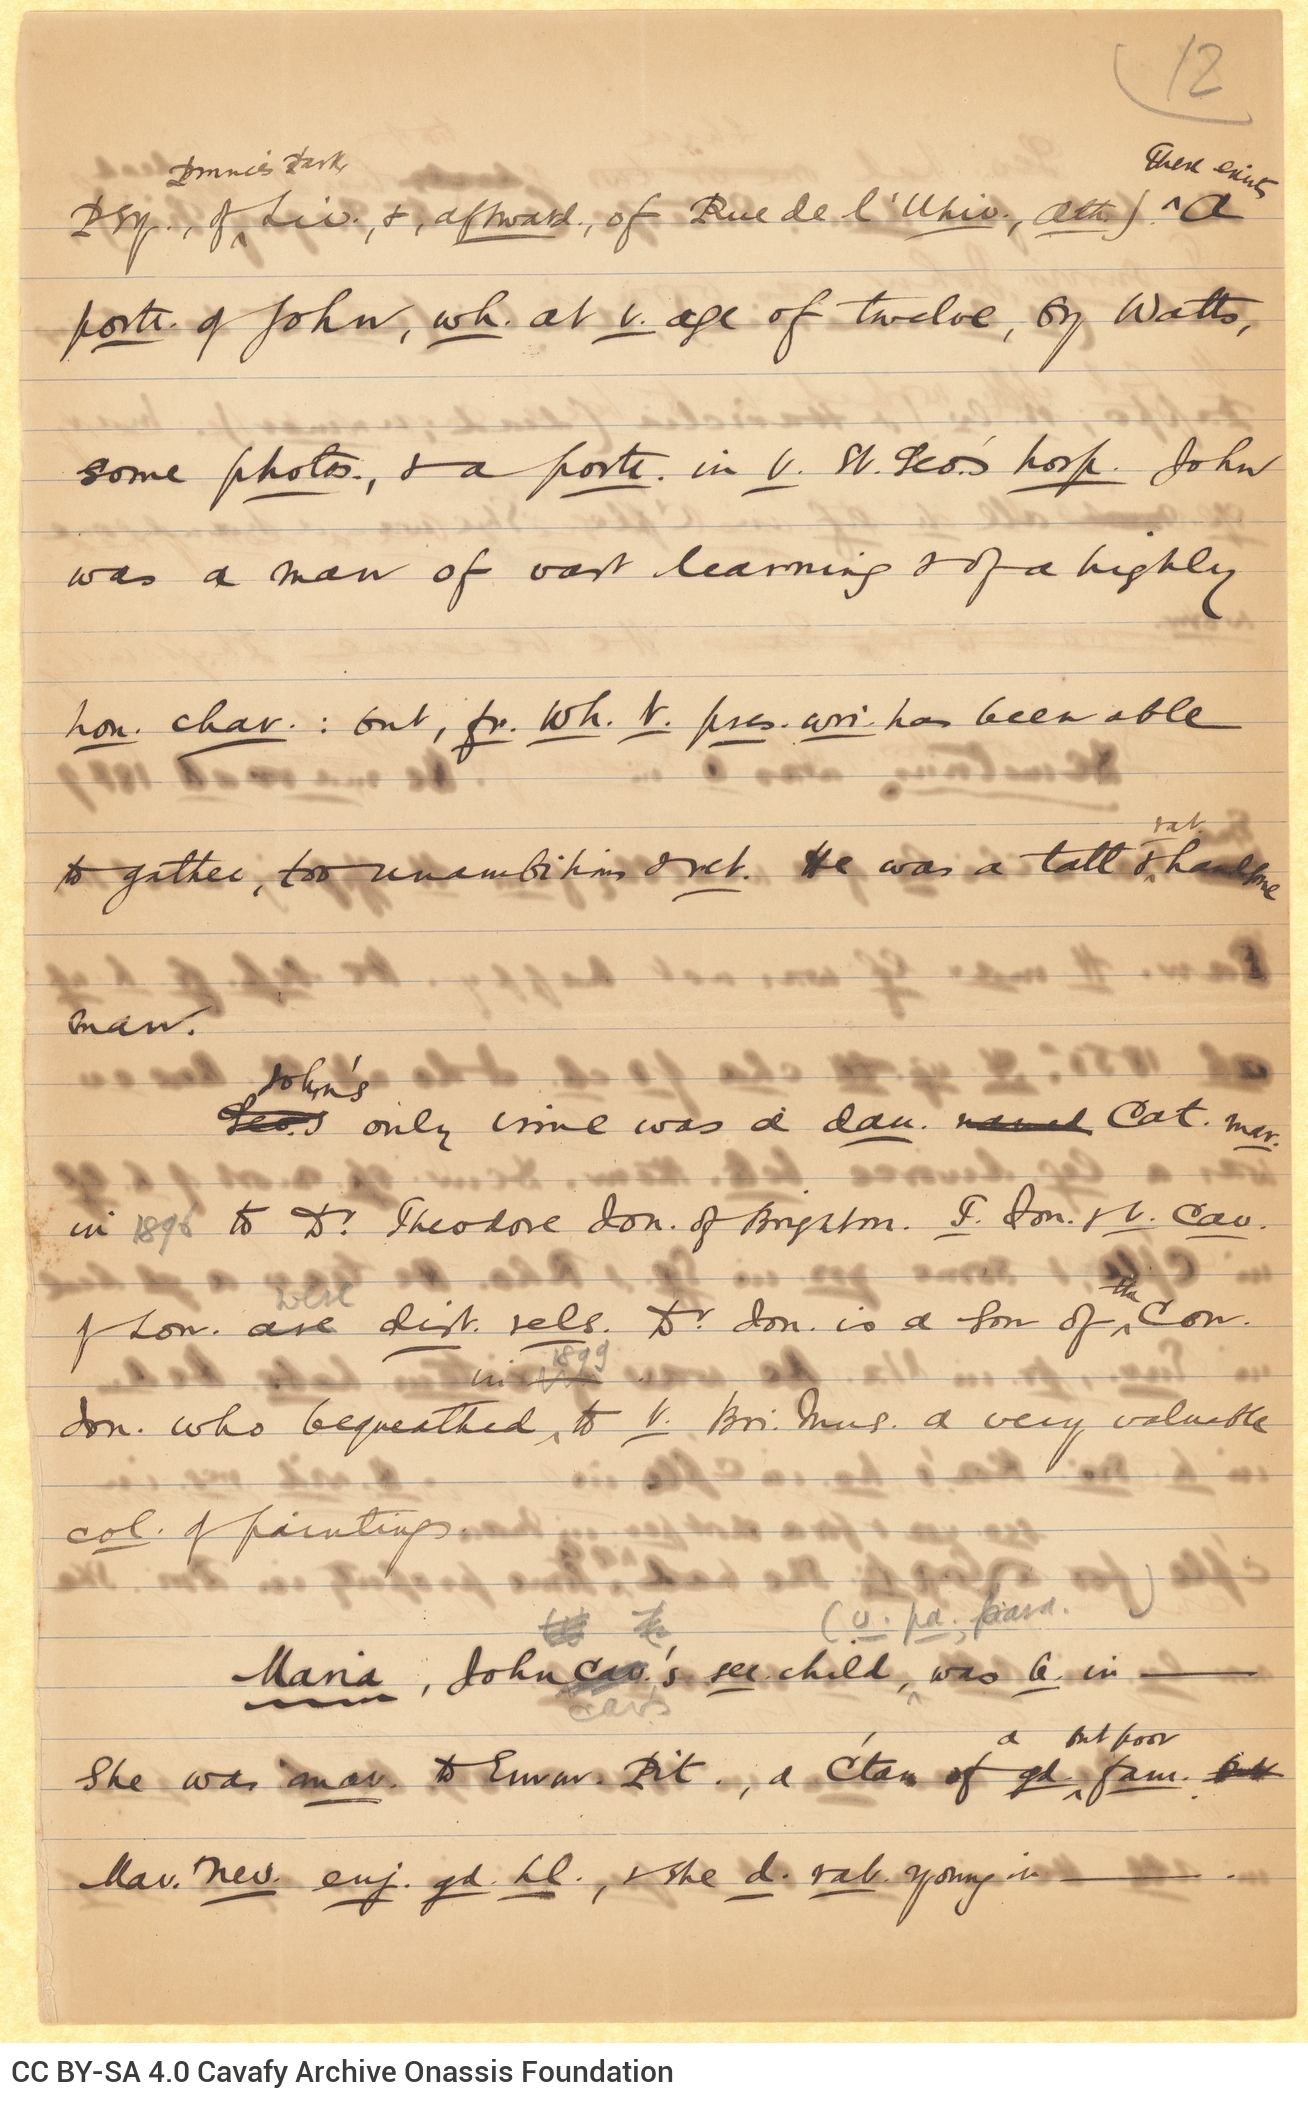 12
There exists
Esq., of Liv. &, afterward., of Rue de l'Univ., Ath.) ^ A
portr. of John, wh. at v. age of twelve, by Watts,
some photos., & a portr. in v. St. Geo.'s hosp. John
was a man of vast learning & of a highly
hon. char.: but, fr. wh. v. pres. wri. has been able
rat.
to gather, too unambitious & ret. He was a tall & handsome
man.
John's
Geo.'s only issue was a dau. named Cat. mar.
in 1896 to Dr. Theodore Ion. of Brighton. T. Ion. & v. Cav.
were
of Lon. are dist. rels. Dr. Ion. is a son of ^ Con.
the
in 1899
Ion. who bequeathed ^ to v. Bri. Mus. a very valuable
col. of paintings.
Maria, John Cav.'s sec. child, was b. in ——
Cav's
a but poor
She was mar. to Emm. Pit., a C'tan of gd. fam. but
Mar. nev. enj. gd. hl., & she d. rat. young in ——.
CC BY-SA 4.0 Cavafy Archive Onassis Foundation